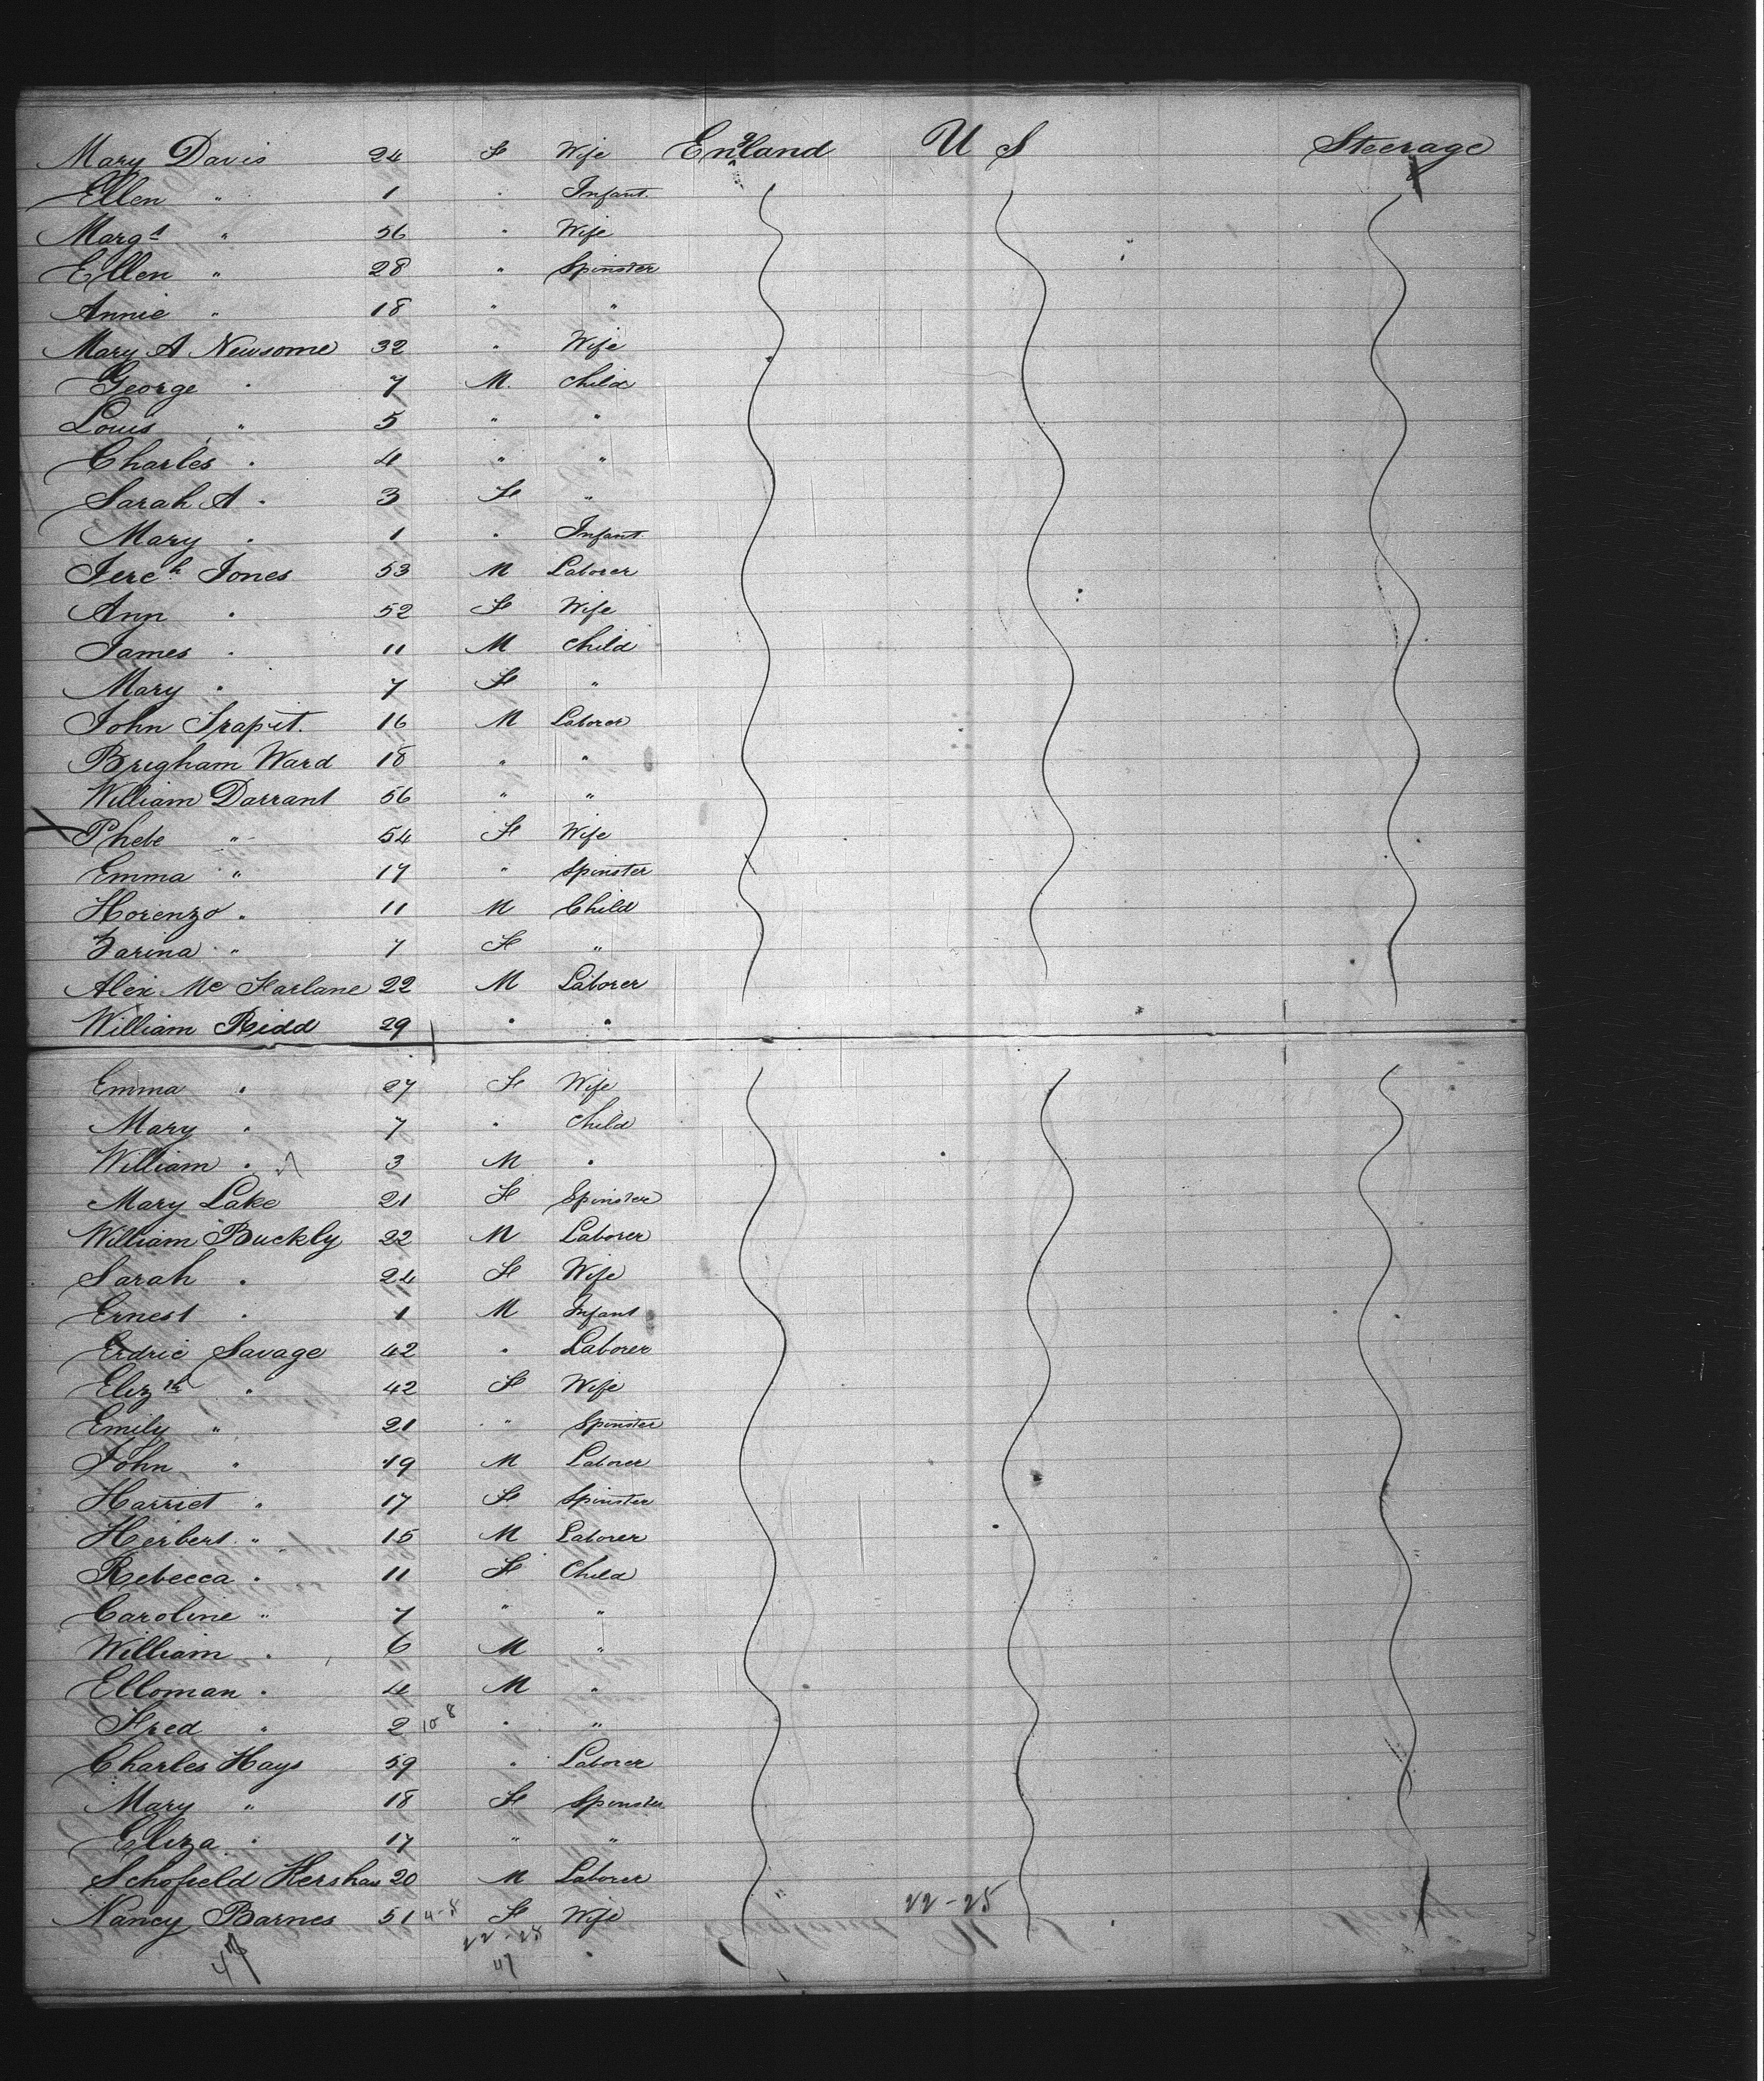 Mary Davis 24 F Wife England U S Steerage
Ellen " 1 " Infant
Margt " 56 " Wife
Ellen " 28 " Spinster
Annie " 18 " "
Mary A Newsome 32 " Wife
George " 7 M Child
Louis " 5 " "
Charles " 4 " "
Sarah A " 3 F "
Mary " 1 " Infant
Jerch Jones 53 M Laborer
Ann " 52 F Wife
James " 11 M Child
Mary " 7 F "
John 16 M Laborer
Brigham Ward 18 " "
William Darrant 56 " "
Phebe " 54 F Wife
Emma " 17 " Spinster
Horenzo " 11 M Child
Zarina " 7 F "
Alex Mc Farlane 22 M Laborer
William Ridd 29 " "
Emma " 27 F Wife
Mary " 7 " Child
William " 3 M "
Mary Lake 21 F Spinster
William Buckly 22 M Laborer
Sarah " 24 F Wife
Ernest " 1 M Infant
Erdric Savage 42 " Laborer
Elizth " 42 F Wife
Emily " 21 " Spinster
John " 19 M Laborer
Harriet " 17 F Spinster
Herbert " 15 M Laborer
Rebecca " 11 F Child
Caroline " 7 " "
William " 6 M "
Elloman " 4 M "
Fred " 2 10 8 " "
Charles Hays 59 " Laborer
Mary " 18 F Spinster
Eliza " 17 " "
Schofield Hershaw 20 M Laborer
Nancy Barnes 51 4-8 F Wife 22-25
47 22-25
47